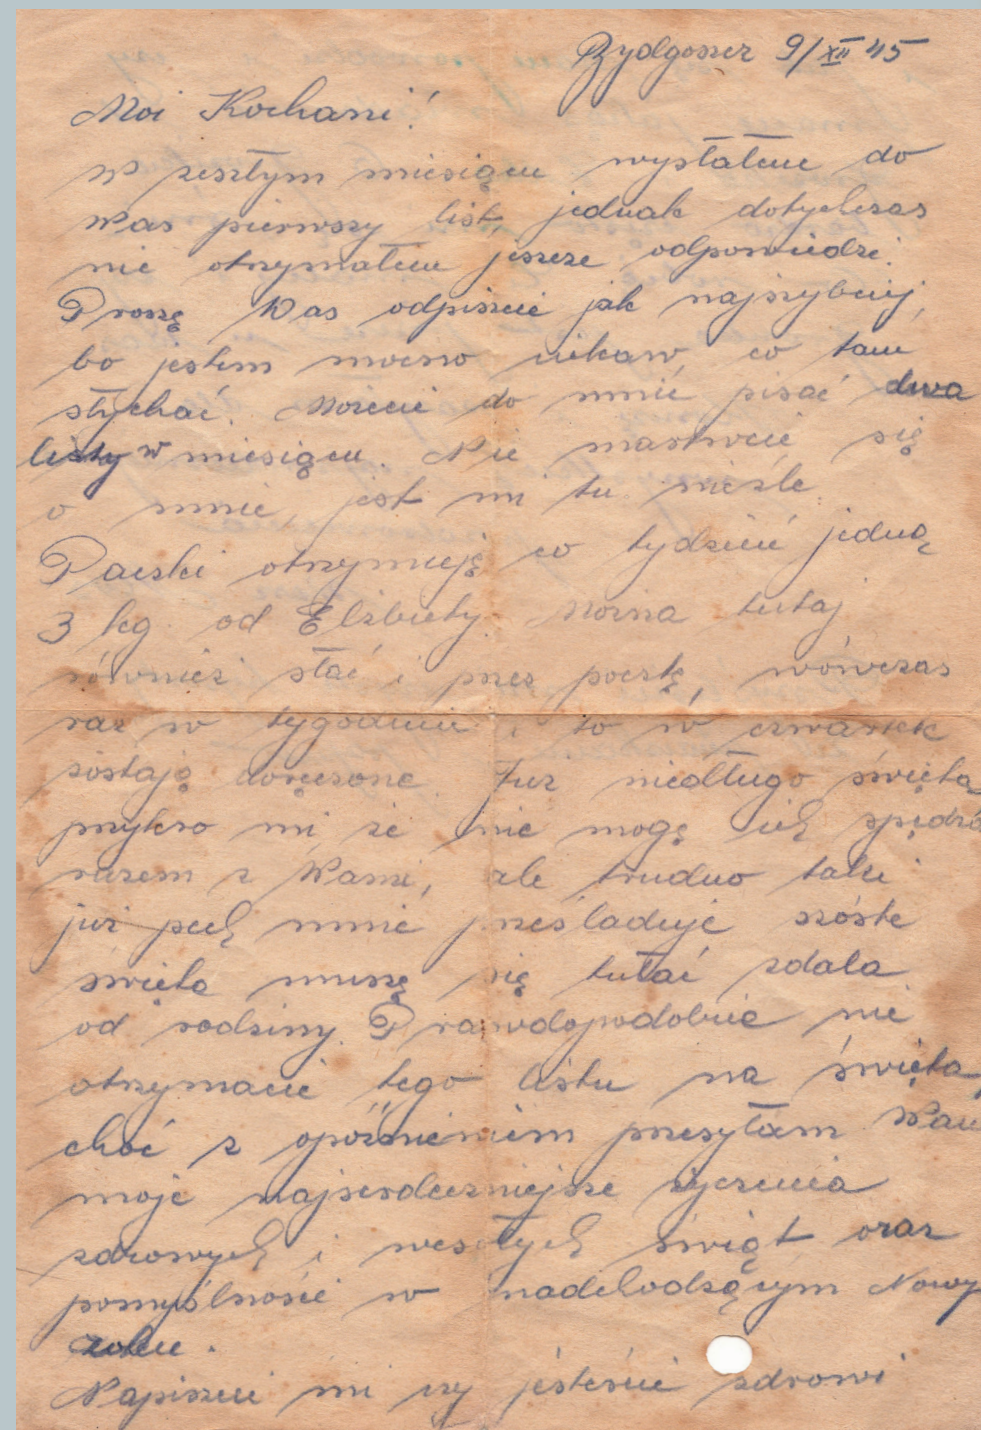 Bydgoszcz 9/XII 45
Moi Kochani!
W zeszłym miesiącu wysłałem do
Was pierwszy list, jednak dotychczas
nie otrzymałem jeszcze odpowiedzi.
Proszę Was odpiszcie jak najszybciej,
bo jestem mocno ciekaw co tam
słychać. Możecie do mnie pisać dwa
listy w miesiącu. Nie martwcie się
o mnie, jest mi tu nieźle.
Paczki otrzymuję co tydzień jedną
3 kg. od Elżbiety. Można tutaj
również słać i przez pocztę, wówczas
raz w tygodniu i to w czwartek
zostają doręczone. Już niedługo święta,
przykro mi że nie mogę ich spędzić
razem z Wami, ale trudno taki
już pech mnie prześladuje szóste
święta muszę się tułać zdala
od rodziny. Prawdopodobnie nie
otrzymacie tego listu na święta,
choć z opóźnieniem przesyłam Wam
moje najserdeczniejsze życzenia
zdrowych i wesołych świąt oraz
pomyślności w nadchodzącym Nowym
roku.
Napiszcie mi czy jesteście zdrowi